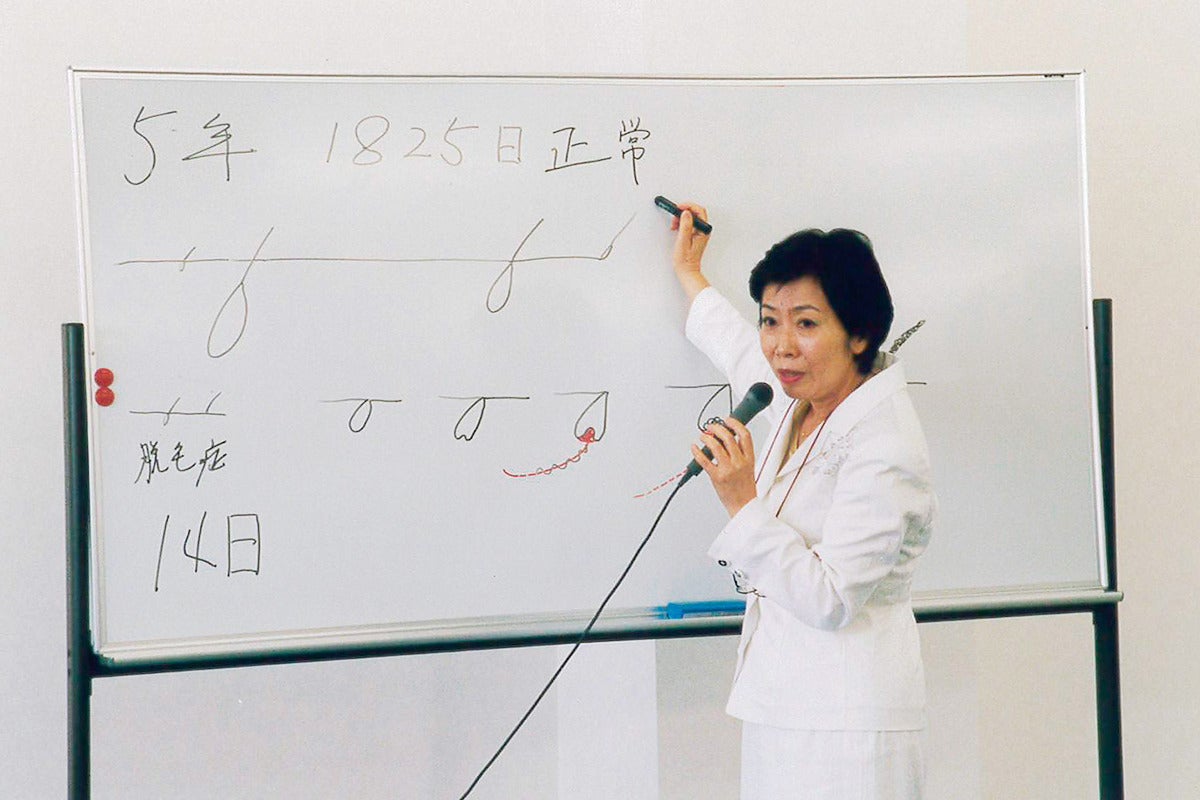 5年 1825日正常
脱毛症
14日